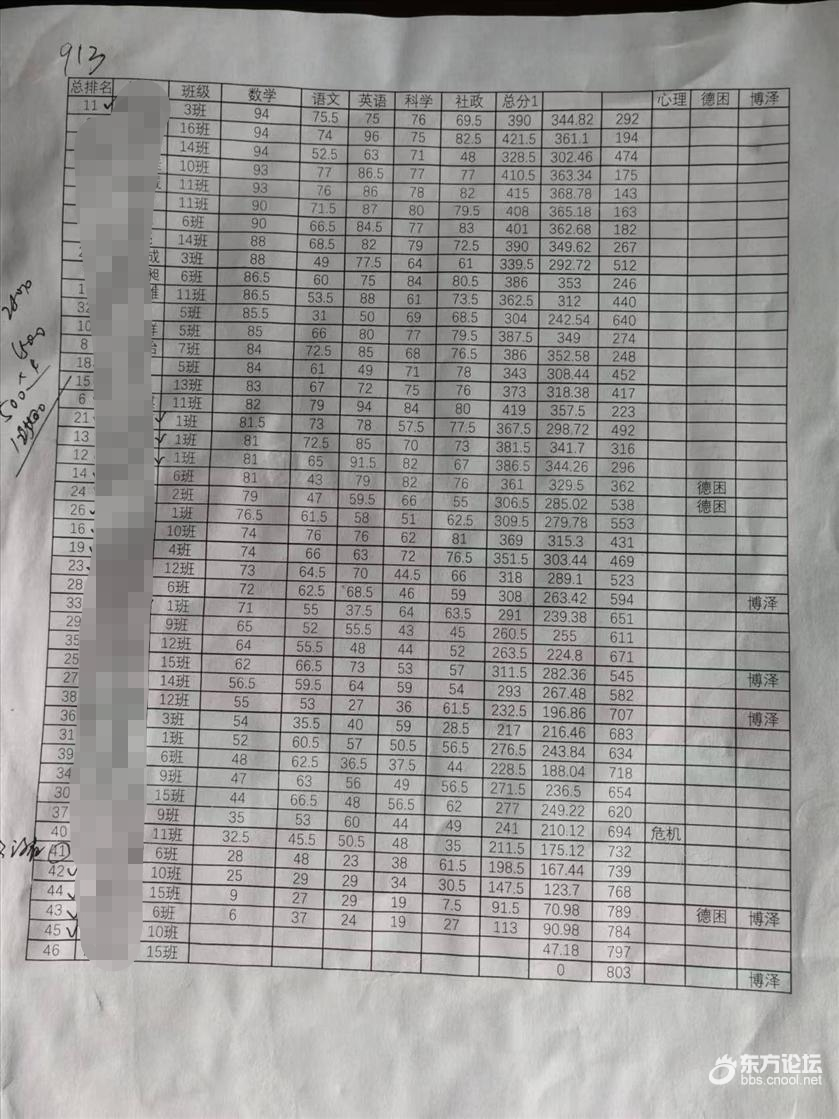 913
总排名 班级 数学 语文 英语 科学 社政 总分1 心理 德困 博泽
11 ✓ 3班 94 75.5 75 76 69.5 390 344.82 292
16班 94 74 96 75 82.5 421.5 361.1 194
14班 94 52.5 63 71 48 328.5 302.46 474
10班 93 77 86.5 77 77 410.5 363.34 175
11班 93 76 86 78 82 415 368.78 143
11班 90 71.5 87 80 79.5 408 365.18 163
6班 90 66.5 84.5 77 83 401 362.68 182
14班 88 68.5 82 79 72.5 390 349.62 267
成 3班 88 49 77.5 64 61 339.5 292.72 512
昶 6班 86.5 60 75 84 80.5 386 353 246
1 雅 11班 86.5 53.5 88 61 73.5 362.5 312 440
32 5班 85.5 31 50 69 68.5 304 242.54 640
10 5班 85 66 80 77 79.5 387.5 349 274
8 7班 84 72.5 85 68 76.5 386 352.58 248
18 5班 84 61 49 71 78 343 308.44 452
15 13班 83 67 72 75 76 373 318.38 417
6 11班 82 79 94 84 80 419 357.5 223
21 ✓ 1班 81.5 73 78 57.5 77.5 367.5 298.72 492
13 ✓ 1班 81 72.5 85 70 73 381.5 341.7 316
12 ✓ 1班 81 65 91.5 82 67 386.5 344.26 296
14 6班 81 43 79 82 76 361 329.5 362 德困
24 2班 79 47 59.5 66 55 306.5 285.02 538 德困
26 ✓ 1班 76.5 61.5 58 51 62.5 309.5 279.78 553
16 ✓ 10班 74 76 76 62 81 369 315.3 431
19 ✓ 4班 74 66 63 72 76.5 351.5 303.44 469
23 ✓ 12班 73 64.5 70 44.5 66 318 289.1 523
28 6班 72 62.5 68.5 46 59 308 263.42 594 博泽
33 1班 71 55 37.5 64 63.5 291 239.38 651
29 9班 65 52 55.5 43 45 260.5 255 611
35 12班 64 55.5 48 44 52 263.5 224.8 671
25 15班 62 66.5 73 53 57 311.5 282.36 545 博泽
27 14班 56.5 59.5 64 59 54 293 267.48 582
38 12班 55 53 27 36 61.5 232.5 196.86 707 博泽
36 3班 54 35.5 40 59 28.5 217 216.46 683
31 1班 52 60.5 57 50.5 56.5 276.5 243.84 634
39 6班 48 62.5 36.5 37.5 44 228.5 188.04 718
34 9班 47 63 56 49 56.5 271.5 236.5 654
30 15班 44 66.5 48 56.5 62 277 249.22 620
37 9班 35 53 60 44 49 241 210.12 694 危机
40 11班 32.5 45.5 50.5 48 35 211.5 175.12 732
41 6班 28 48 23 38 61.5 198.5 167.44 739
42 ✓ 10班 25 29 29 34 30.5 147.5 123.7 768
44 ✓ 15班 9 27 29 19 7.5 91.5 70.98 789 德困 博泽
43 ✓ 6班 6 37 24 19 27 113 90.98 784
45 ✓ 10班 47.18 797
46 15班 0 803 博泽
东方论坛
bbs.cnool.net